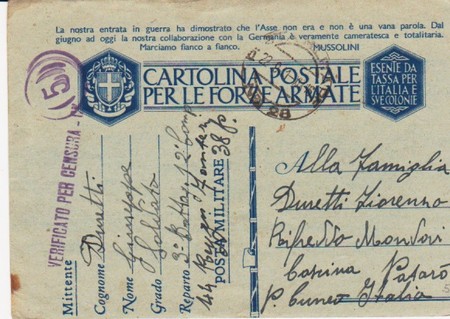 La nostra entrata in guerra ha dimostrato che l'Asse non era e non è una vana parola. Dal
giugno ad oggi la nostra collaborazione con la Germania è veramente cameratesca e totalitaria.
Marciamo fianco a fianco. MUSSOLINI
CARTOLINA POSTALE
PER LE FORZE ARMATE
ESENTE DA
TASSA PER
L'ITALIA E
SVE COLONIE
5
28
VERIFICATO PER CENSURA
Mittente
Cognome Duretti
Nome Giuseppe
Grado Soldato
Reparto 3º Battag. 12 Comp
44 Fanter
POSTA MILITARE 38
Alla Famiglia
Duretti Fiorenzo
Rifreddo Mondovi
Cascina
P. Cuneo Italia